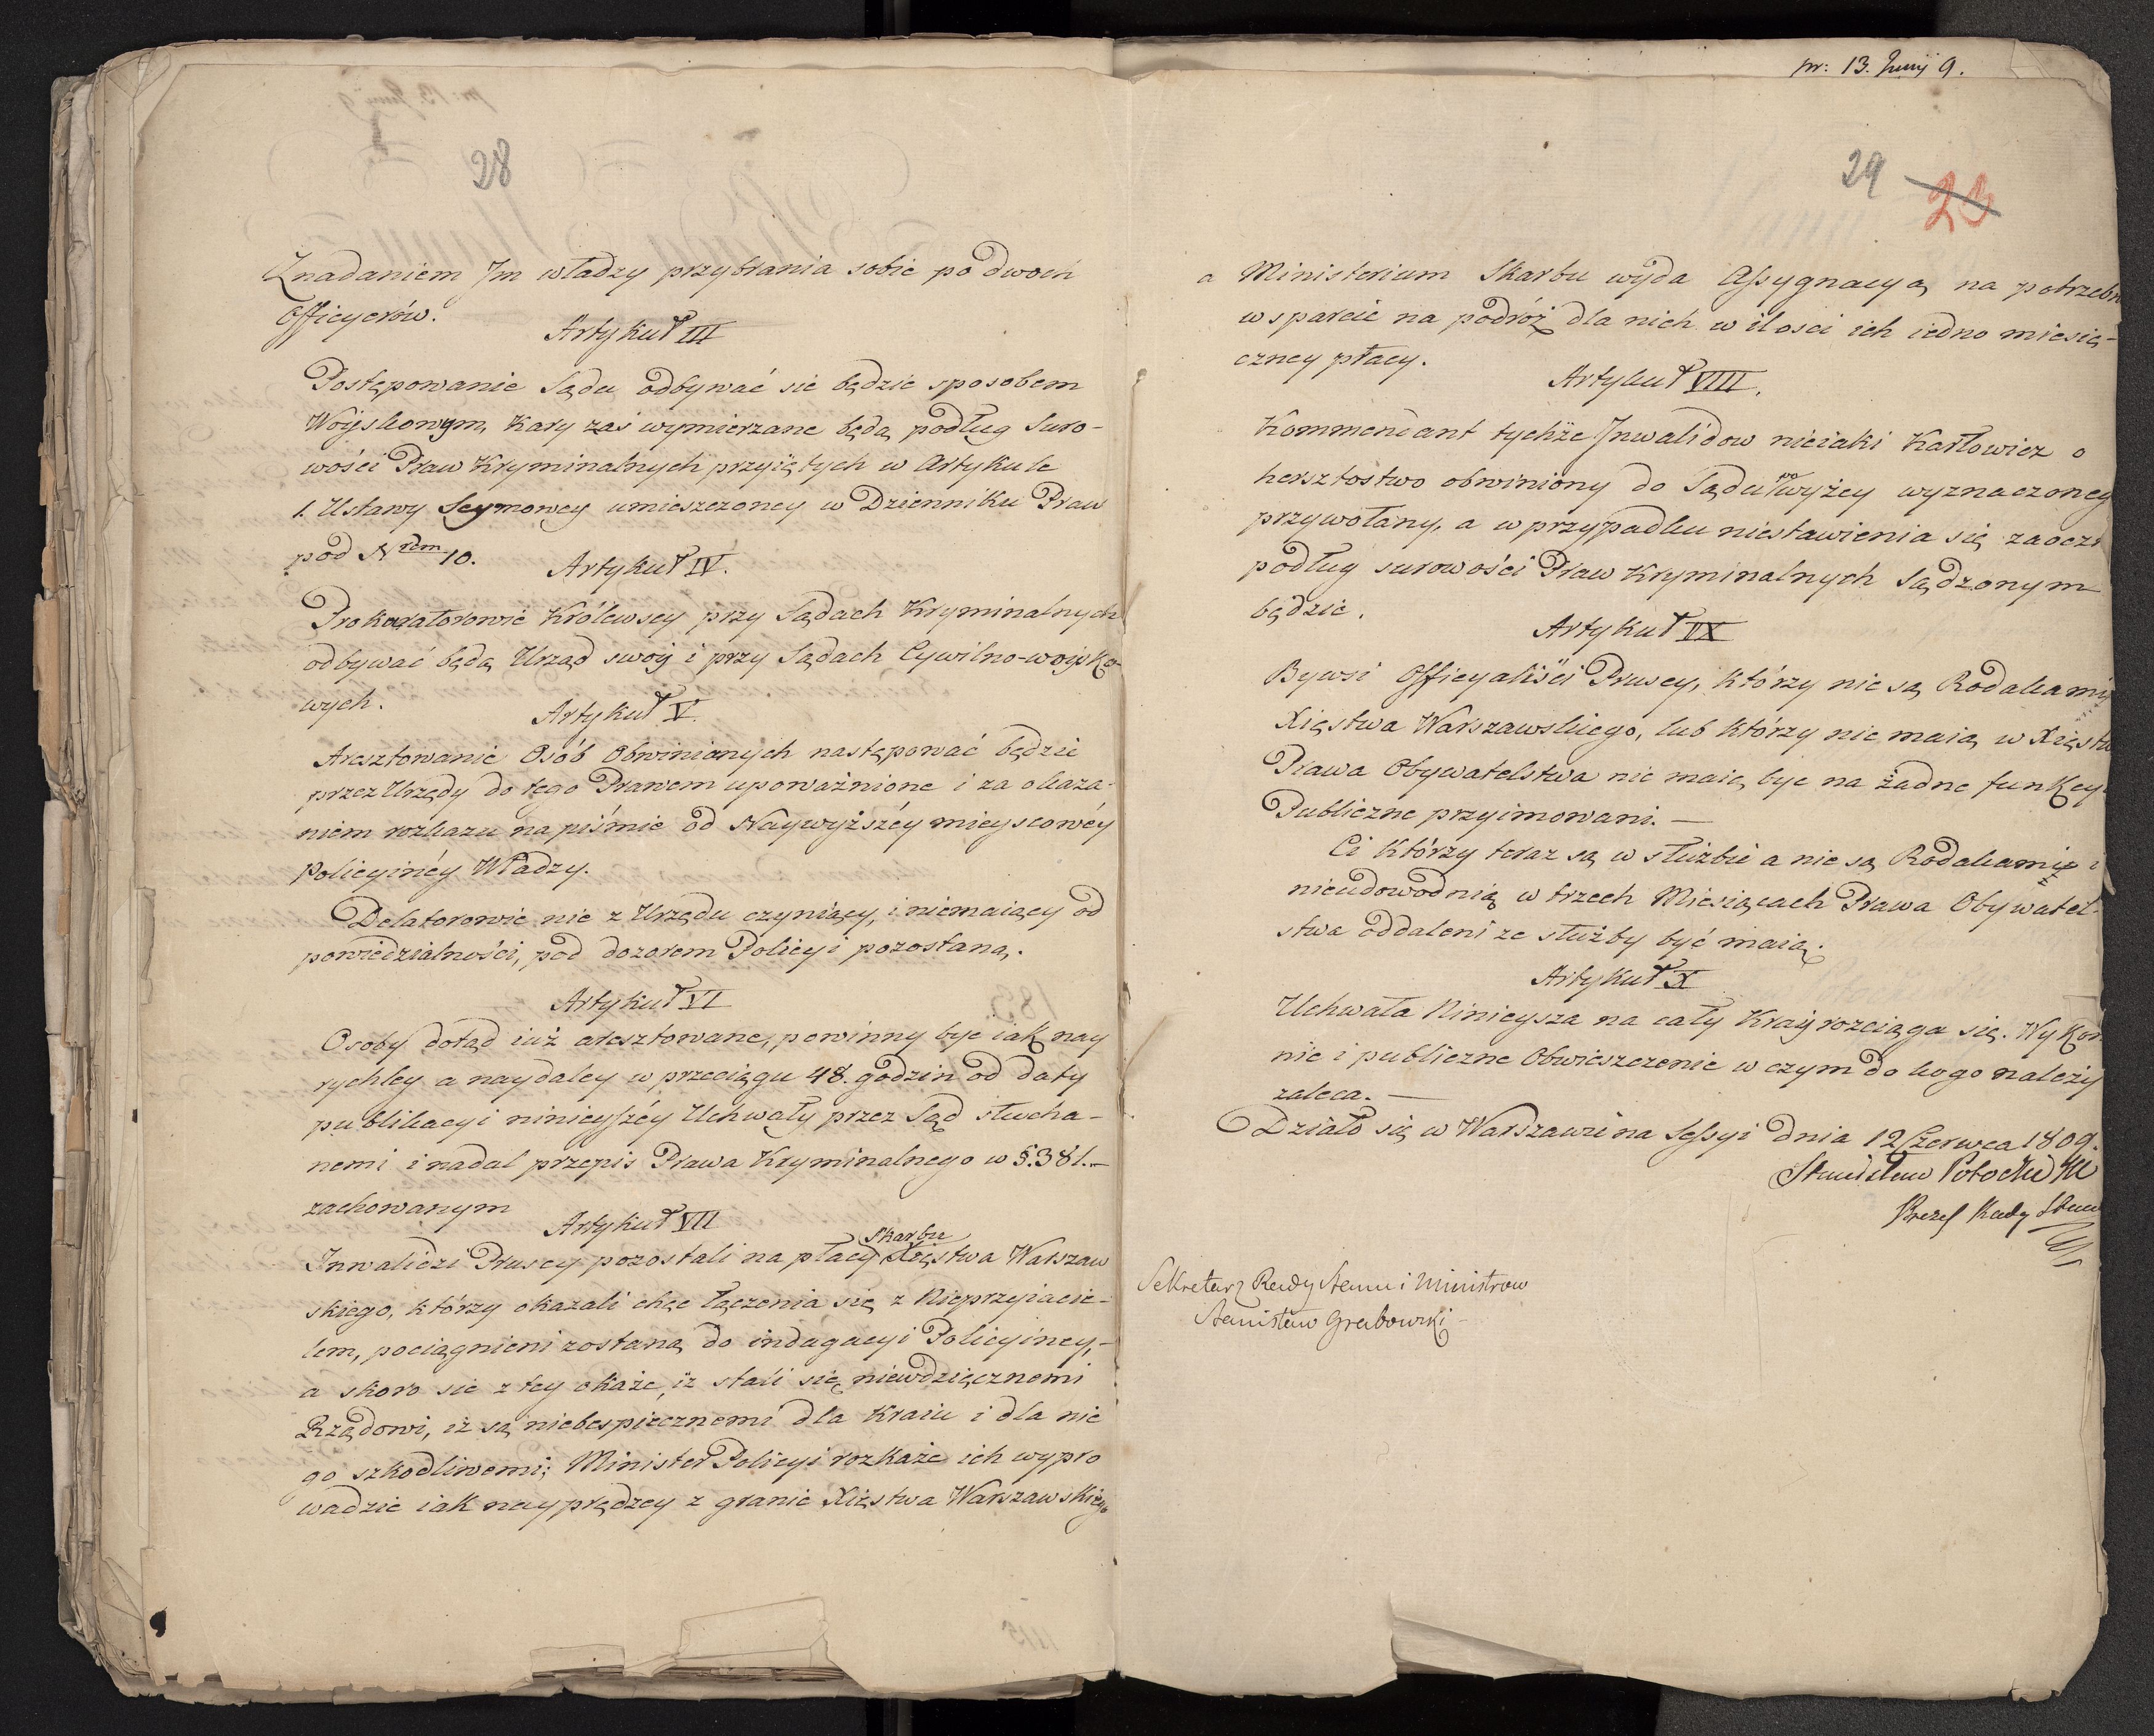 28
Znadaniem Jm władzy przybrania sobie po dwoch
Officyerów.
Artykuł III
Postępowanie Sądu odbywać sie będzie sposobem
Woyskowym, Kary zaś wymierzane będą podług Suro-
wości Praw Kryminalnych przyiętych w Artykule
1. Ustawy Seymowey umieszczoney w Dzienniku Praw
pod Nrem 10.
Artykuł IV.
Prokuratorowie Królewscy przy Sądach Kryminalnych
odbywać będą Urząd swóy i przy Sądach Cywilno-woysko-
wych.
Artykuł V.
Aresztowanie Osób Obwinianych następować będzie
przez Urzędy do tego Prawem upoważnione i za okaza-
niem rozkazu na piśmie od Naywyższéy mieyscowéy
Policyinéy Władzy.
Delatorowie nie z Urzędu czyniący, i niemaiący od
powiedzialności, pod dozorem Policyi pozostaną.
Artykuł VI
Osoby dotąd iuż aresztowane, powinny byc iak nay
rychley a naydaley w przeciągu 48. godzin od daty
publikacyi ninieyszéy Uchwały przez Sąd słucha-
nemi i nadal przepis Prawa Kryminalnego w §. 381. –
zachowanym
Artykuł VII
Inwalidzi Pruscy pozostali na płacy Skarbu Xięstwa Warszaw
skiego, którzy okazali chęc łączenia się z Nieprzyiacie-
lem, pociągnieni zostaną do indagacyi Policyiney, –
a skoro sie z tey okaże, iż stali się niewdzięcznemi
Rządowi, iż są niebespiecznemi dla Kraiu i dla nie
go szkodliwemi; Minister Policyi rozkaże ich wypro
wadzic iak nayprędzey z granic Xięstwa Warszawskiego
pr: 13. Junij 9.
29 23
a Ministerium Skarbu wyda Assygnacyą na potrzebn
wsparcie na podróż dla nich w ilosci ich iedno miesię-
czney płacy.
Artykuł VIII.
Kommendant tychże Jnwalidow nieiaki Karłowicz o
hersztostwo obwiniony do Sądu wyżey wyznaczoneg
przywołany, a w przypadku niestawienia się zaocz
podług surowości Praw Kryminalnych Sądzonym
będzie.
Artykuł IX
Bywsi Officyaliści Pruscy, którzy nie są Rodakami
Xięstwa Warszawskiego, lub którzy nie maią w Xięstw
Prawa Obywatelstwa nie maią byc na żadne funkcy
Publiczne przyimowani. —
Ci którzy teraz są w służbie a nie są Rodakami i
nieudowodnią w trzech Miesiącach Prawa Obywatel-
stwa oddaleni ze służby być maią.
Artykuł X
Uchwała Ninieysza na cały Kray rozciąga się. Wykon
nie i publiczne Obwieszczenie w czym do kogo należy
zaleca. —
Działo się w Warszawie na Sessyi dnia 12 Czerwca 1809.
Stanisław Potocki
Prezes Rady Stanu
Sekretarz Rady Stanu i Ministrow
Stanisław Grabowski